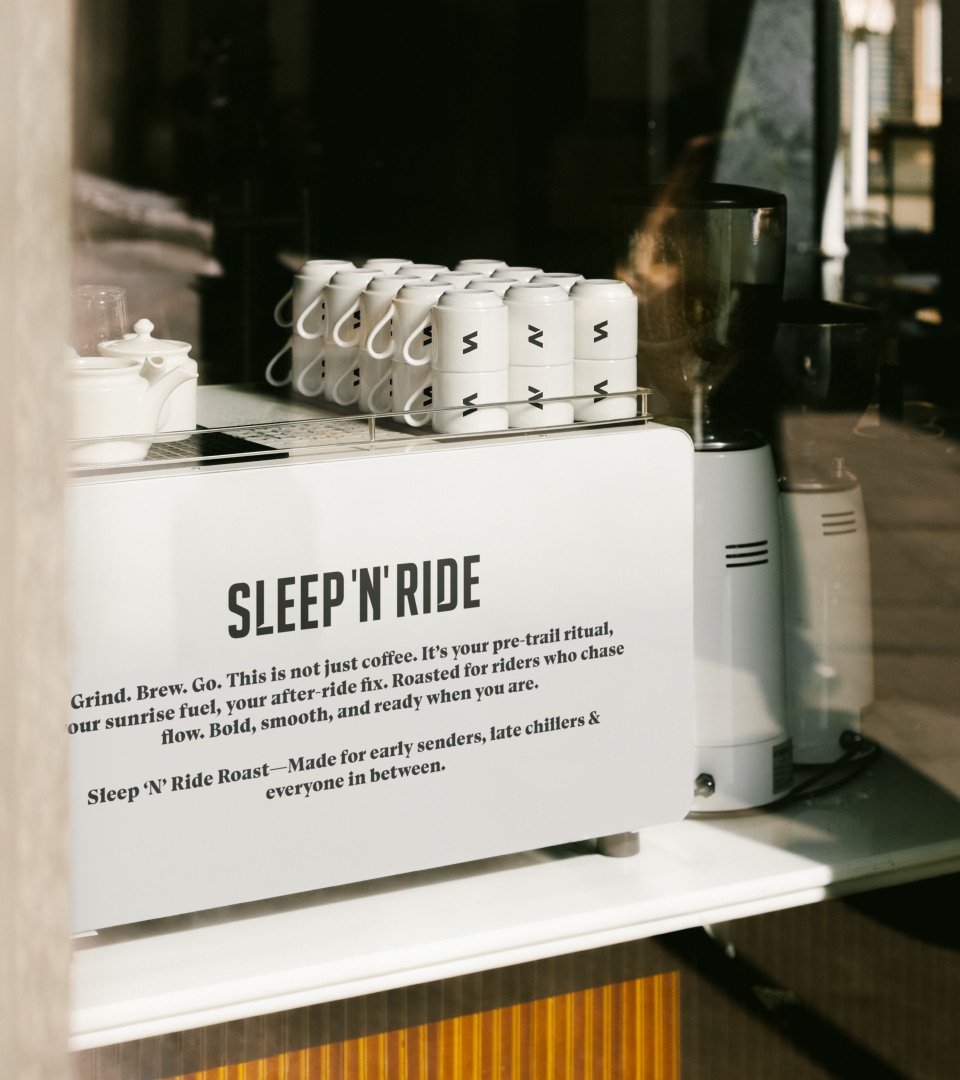 SLEEP 'N' RIDE
Grind. Brew. Go. This is not just coffee. It's your pre-trail ritual,
our sunrise fuel, your after-ride fix. Roasted for riders who chase
flow. Bold, smooth, and ready when you are.
Sleep ‘N’ Ride Roast—Made for early senders, late chillers &
everyone in between.